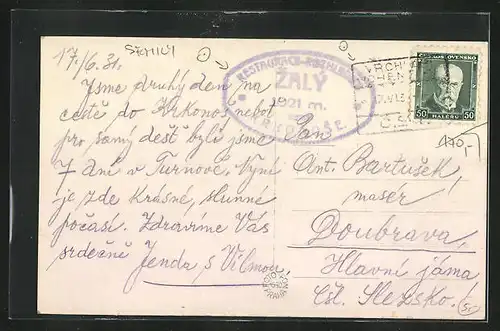 17/6. 31.
SEMILY
Jsme druhý den na
cestě do Krkonoš neboť
pro samý dešť byli jsme
7 dní v Turnově. Nyní
je zde krásné, slunné
počasí. Zdravíme Vás
srdečně Jenda s Vilmou
RESTAURACE-ROZHLEDNA
ŽALÝ
1021 m.
VRCH
HEN
50 HALÉRŮ 50
170,-
Pan
Ant. Bartušek,
masér
Doubrava,
Hlavní jáma
Čsl. Slezsko.
Sr